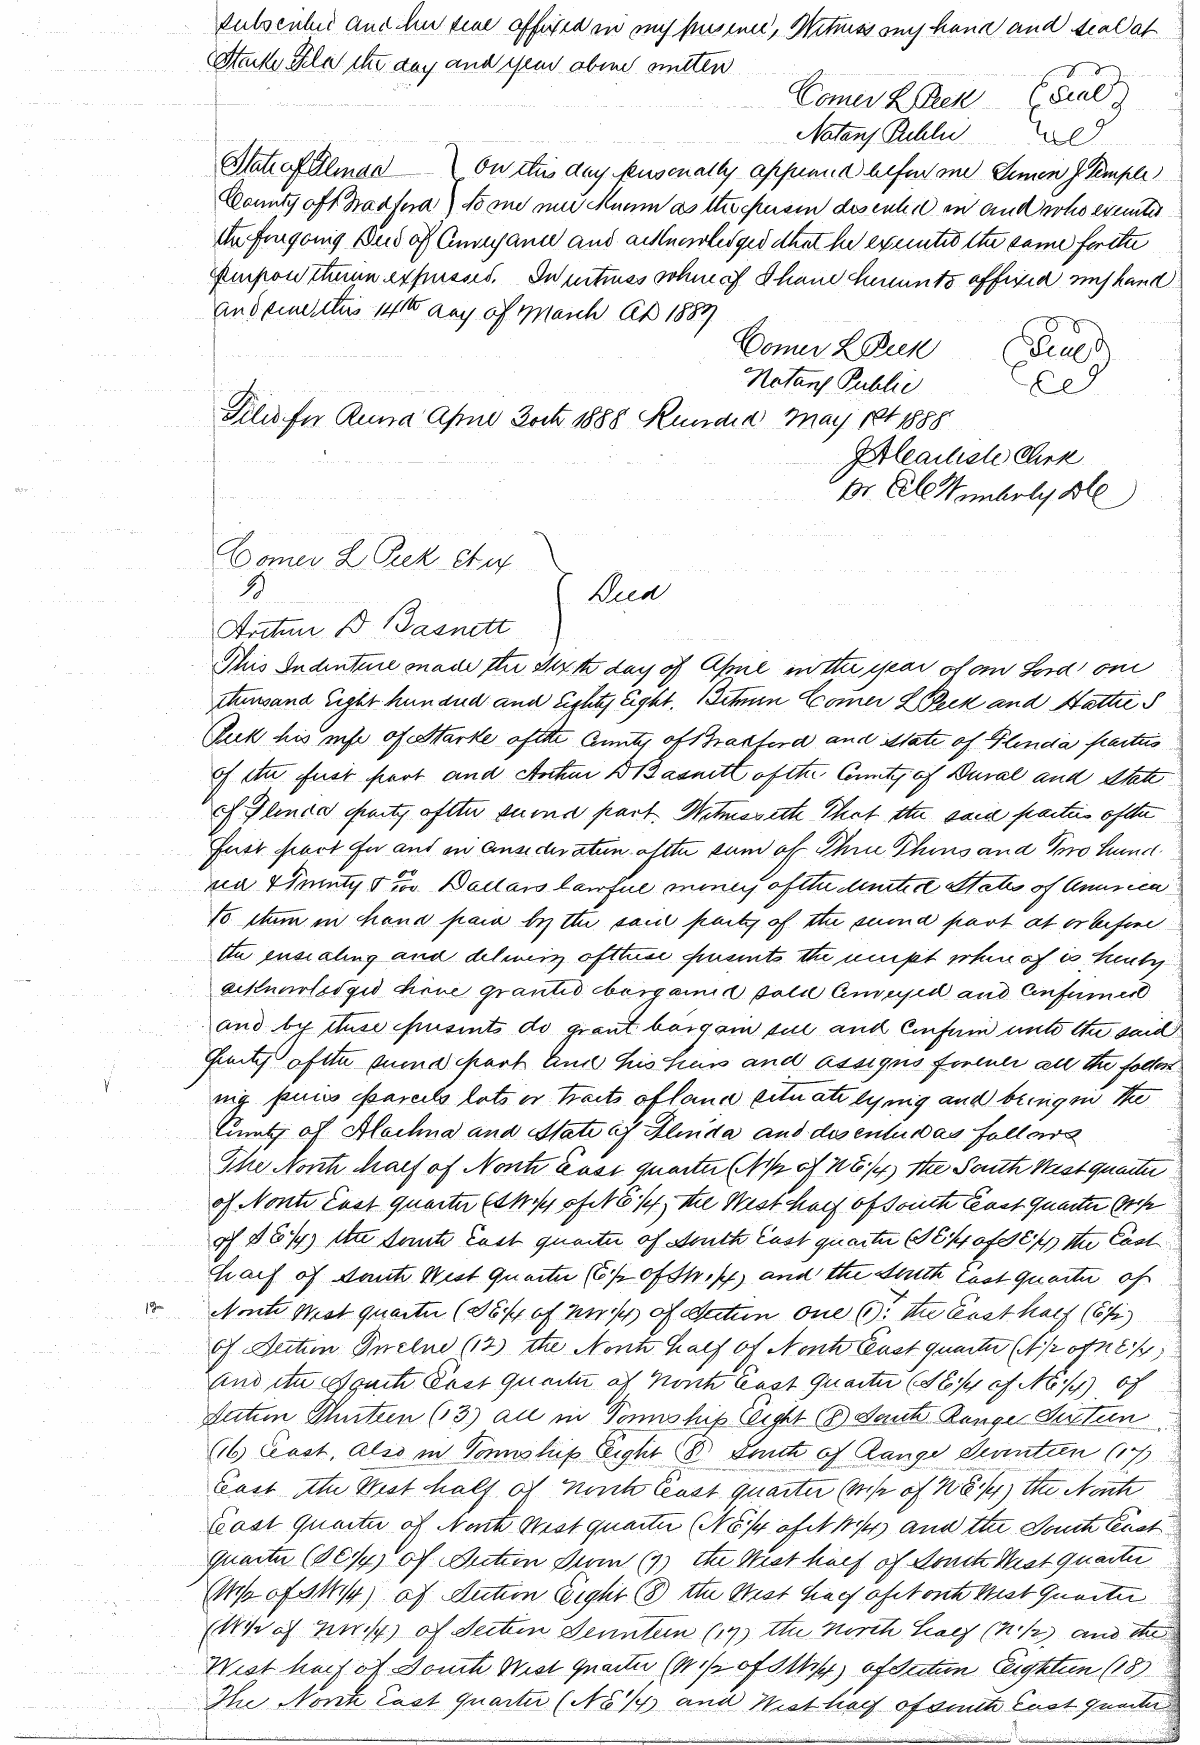 subscribed and her seal affixed in my presence, Witness my hand and seal at
Starke Fla the day and year above written
Comer L Peek (Seal)
Notary Public
State of Florida } On this day personally appeared before me Simon J Temple
County of Bradford } to me well known as the person described in and who executed
the foregoing Deed of Conveyance and acknowledged that he executed the same for the
purpose therein expressed. In witness where of I have hereunto affixed my hand
and seal this 14th day of March AD 1887
Comer L Peek (Seal)
Notary Public
Filed for Record April 30th 1888 Recorded May 1st 1888
Clerk
Wimberly DC
Comer L Peek et ux
To } Deed
Arthur D Basnett
This Indenture made the Sixth day of April in the year of our Lord one
thousand Eight hundred and Eighty Eight. Between Comer L Peek and Hattie S
Peek his wife of Starke of the County of Bradford and State of Florida parties
of the first part and Arthur D Basnett of the County of Duval and State
of Florida party of the second part. Witnesseth That the said parties of the
first part for and in consideration of the sum of Three Thousand Two hund
red & Twenty & 00/100 Dollars lawful money of the United States of America
to them in hand paid by the said party of the second part at or before
the ensealing and delivery of these presents the receipt where of is hereby
acknowledged have granted bargained sold Conveyed and Confirmed
and by these presents do grant bargain sell and Confirm unto the said
Party of the second part and his heirs and assigns forever all the follow
ing pieces parcels lots or tracts of land situate lying and being in the
County of Alachua and State of Florida and described as follows
The North half of North East quarter (N½ of NE¼) the South West quarter
of North East quarter (SW¼ of NE¼) the West half of South East quarter (W½
of SE¼) the South East quarter of South East quarter (SE¼ of SE¼) the East
half of South West quarter (E½ of SW¼) and the South East quarter of
North West quarter (SE¼ of NW¼) of Section one (1): the East half (E½)
of Section Twelve (12) the North half of North East quarter (N½ of NE¼)
and the South East Quarter of North East Quarter (SE¼ of NE¼) of
Section Thirteen (13) all in Township Eight (8) South Range Sixteen
(16) East, Also in Township Eight (8) South of Range Seventeen (17)
East the West half of North East quarter (W½ of NE¼) the North
East Quarter of North West quarter (NE¼ of NW¼) and the South East
quarter (SE¼) of Section Seven (7) the West half of South West quarter
(W½ of SW¼) of Section Eight (8) the West half of North West Quarter
(W½ of NW¼) of Section Seventeen (17) the North half (N½) and the
West half of South West quarter (W½ of SW¼) of Section Eighteen (18)
The North East quarter (NE¼) and West half of South East quarter